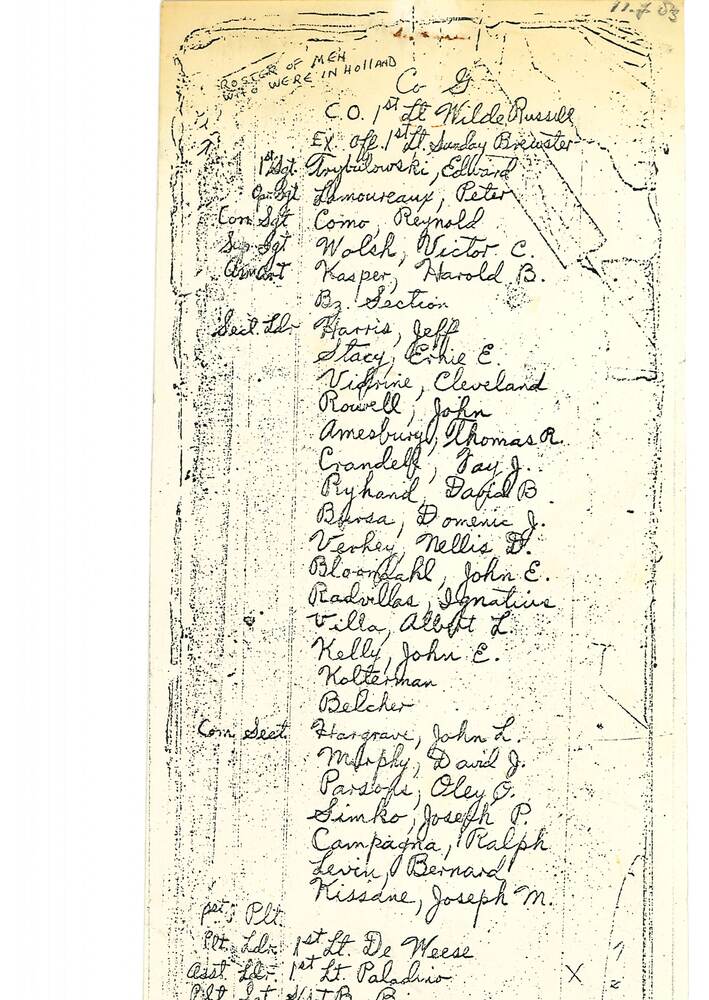 11.7.83
ROSTER OF MEN
WHO WERE IN HOLLAND
Co G
C.O. 1st Lt Wilde Russell
Ex. Off. 1st Lt. Sunday Brewster
1st Sgt Trybulowski, Edward
Op. Sgt Lamoureaux, Peter
Com Sgt Como, Reynold
Sup Sgt Walsh, Victor C.
Armort Kasper, Harold B.
Bz. Section
Sect. Ldr Harris, Jeff
Stacy, Ernie E.
Vidrine, Cleveland
Rowell, John
Amesbury, Thomas R.
Crandell, Fay J.
Ryhand, David B
Bursa, Domenic J.
Verhey, Nellis D.
Bloomdahl, John E.
Radvillas, Ignatius
Villa, Albert L.
Kelly, John E.
Kolterman
Belcher
Com Sect Hargrave, John L.
Murphy, David J.
Parsons, Oley O.
Simko, Joseph P.
Campagna, Ralph
Levin, Bernard
Kissane, Joseph M.
1st Plt.
Plt. Ldr. 1st Lt. De Weese
Asst Ldr. 1st Lt. Paladino X
Plt Sgt S/Sgt